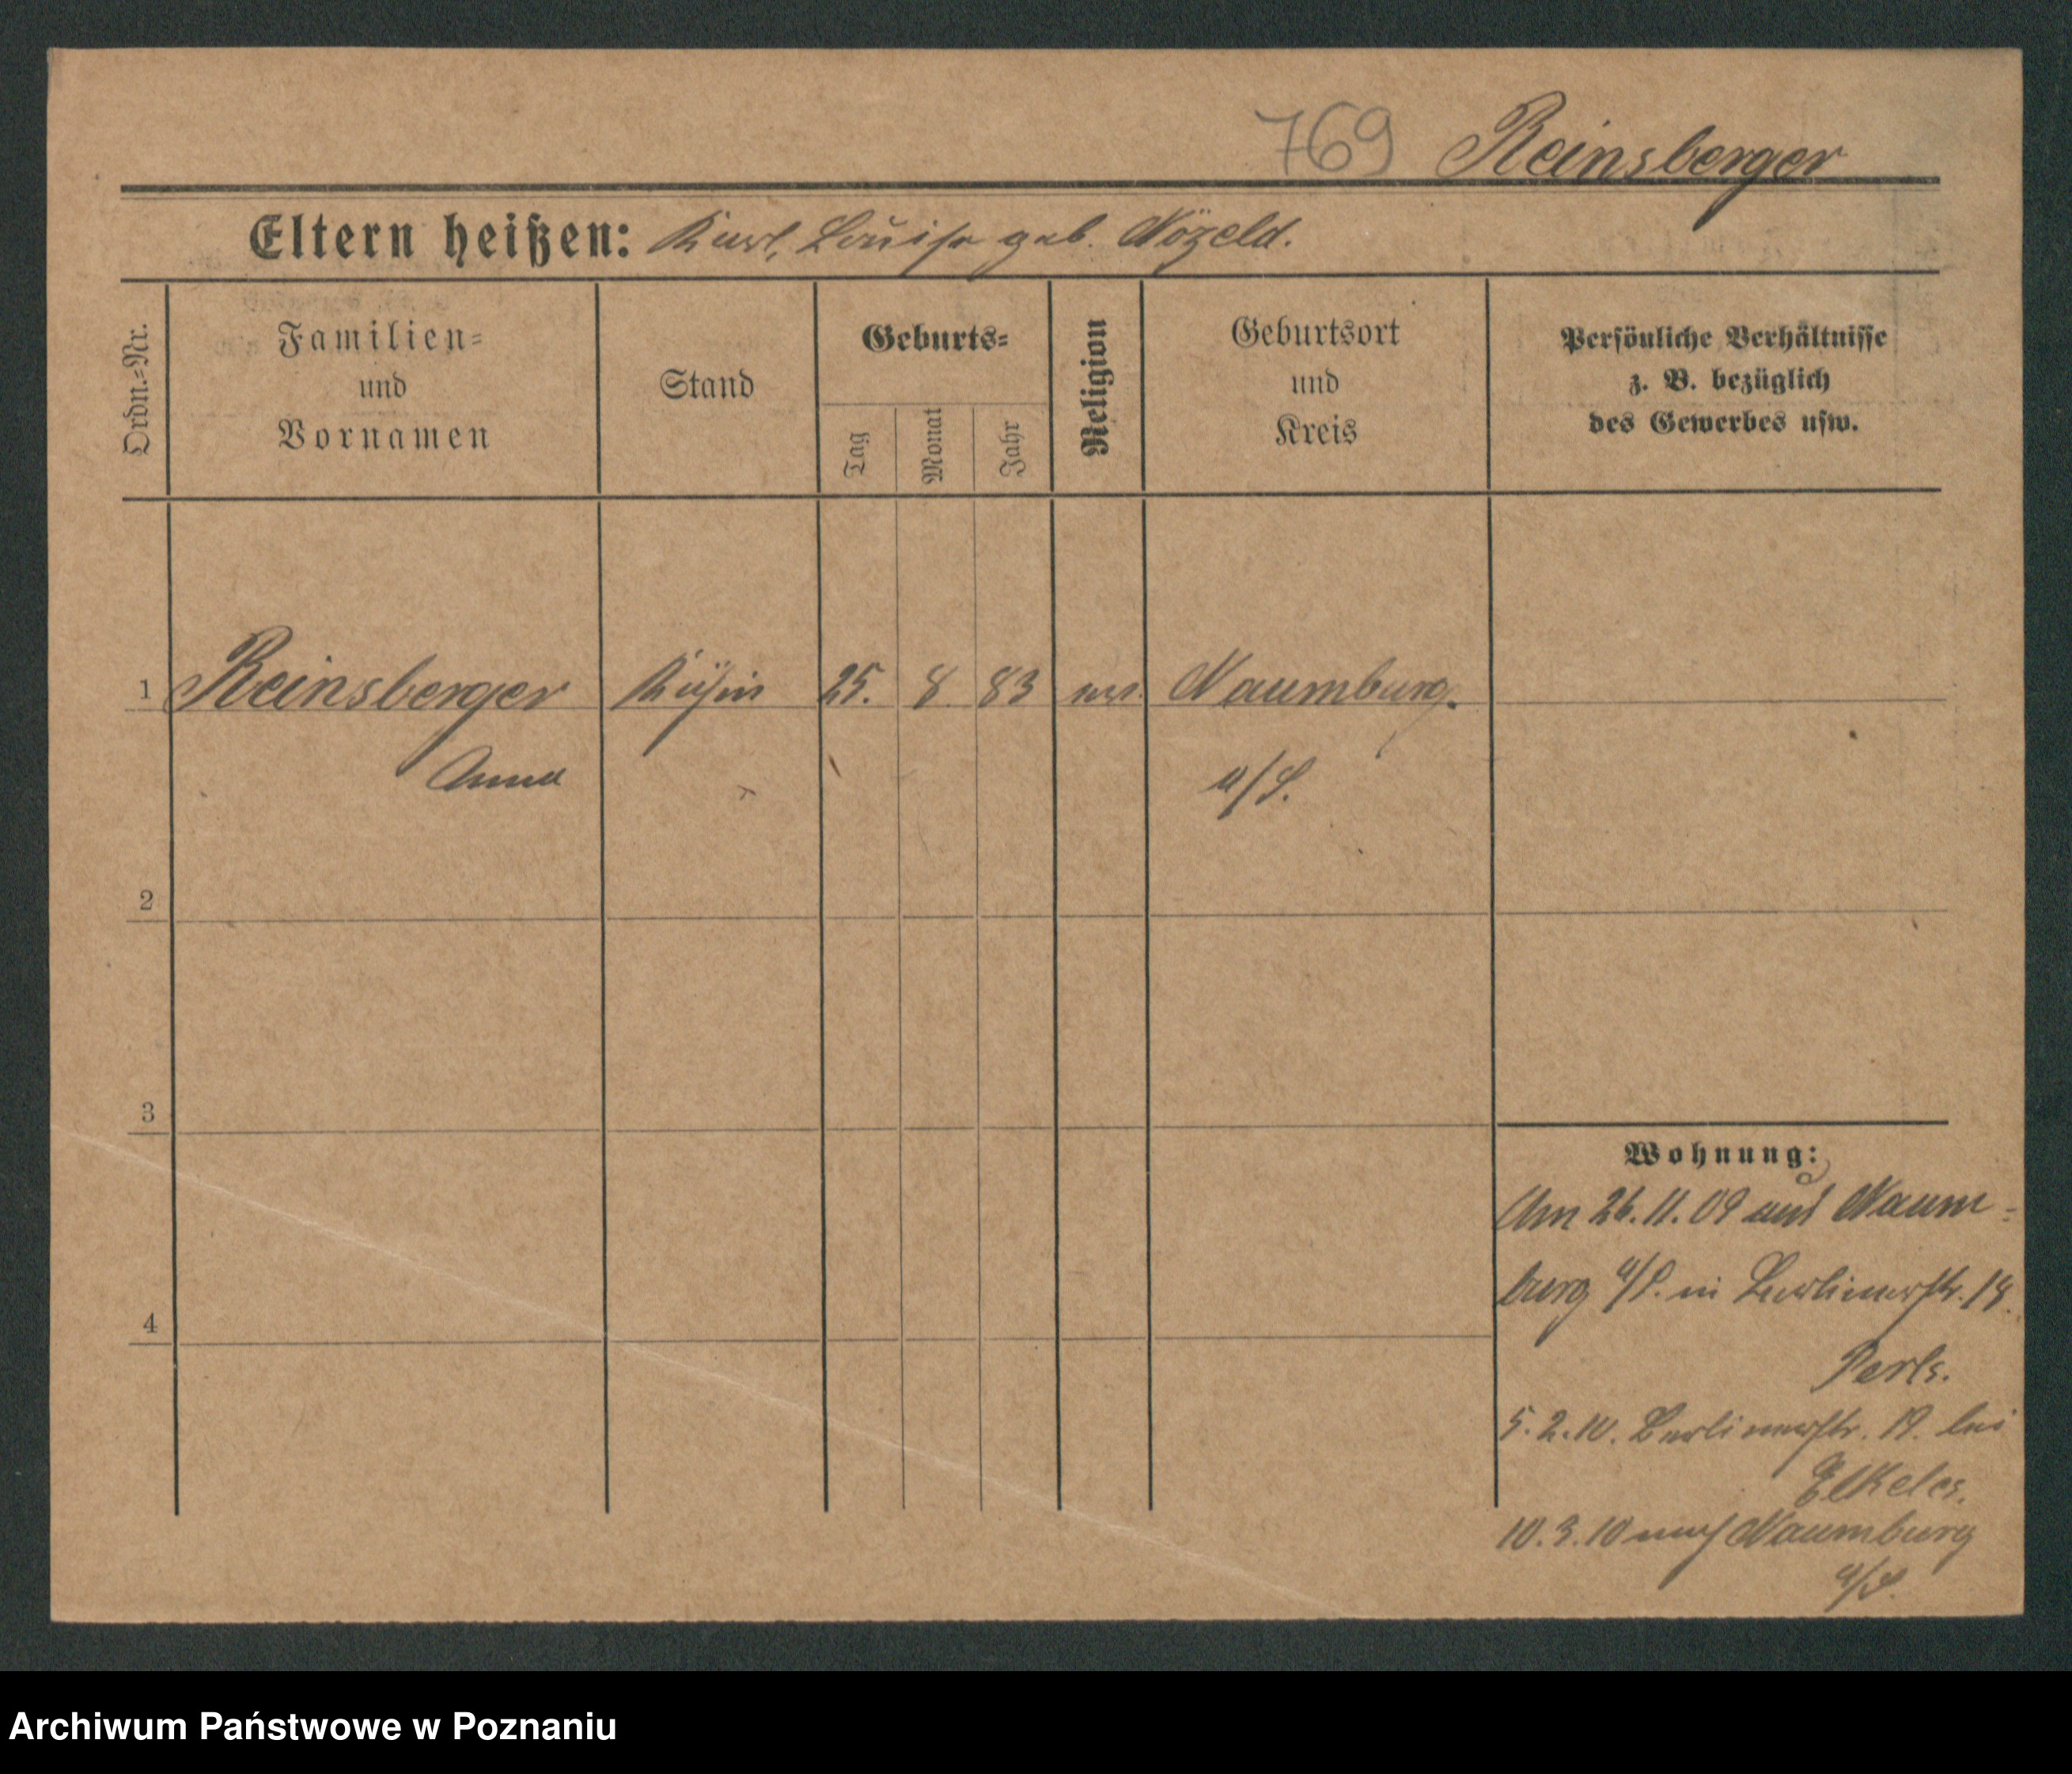 769 Reinsberger
Eltern heißen: Karl, Louise geb. Nözeld.
Ordn.-Nr.
Familien-
und
Vornamen
Stand
Geburts-
Tag
Monat
Jahr
Religion
Geburtsort
und
Kreis
Persönliche Verhältnisse
z. B. bezüglich
des Gewerbes usw.
1 Reinsberger 25. 8. 83 Naumburg.
Anna a/S.
2
3
4
Wohnung:
Am 26.11.09 aus Naum-
burg a/S. in Berlinerstr. 19.
Perls.
5.2.10. Berlinerstr. 19. bei
Elkeles.
10.3.10 nach Naumburg
a/S.
Archiwum Państwowe w Poznaniu